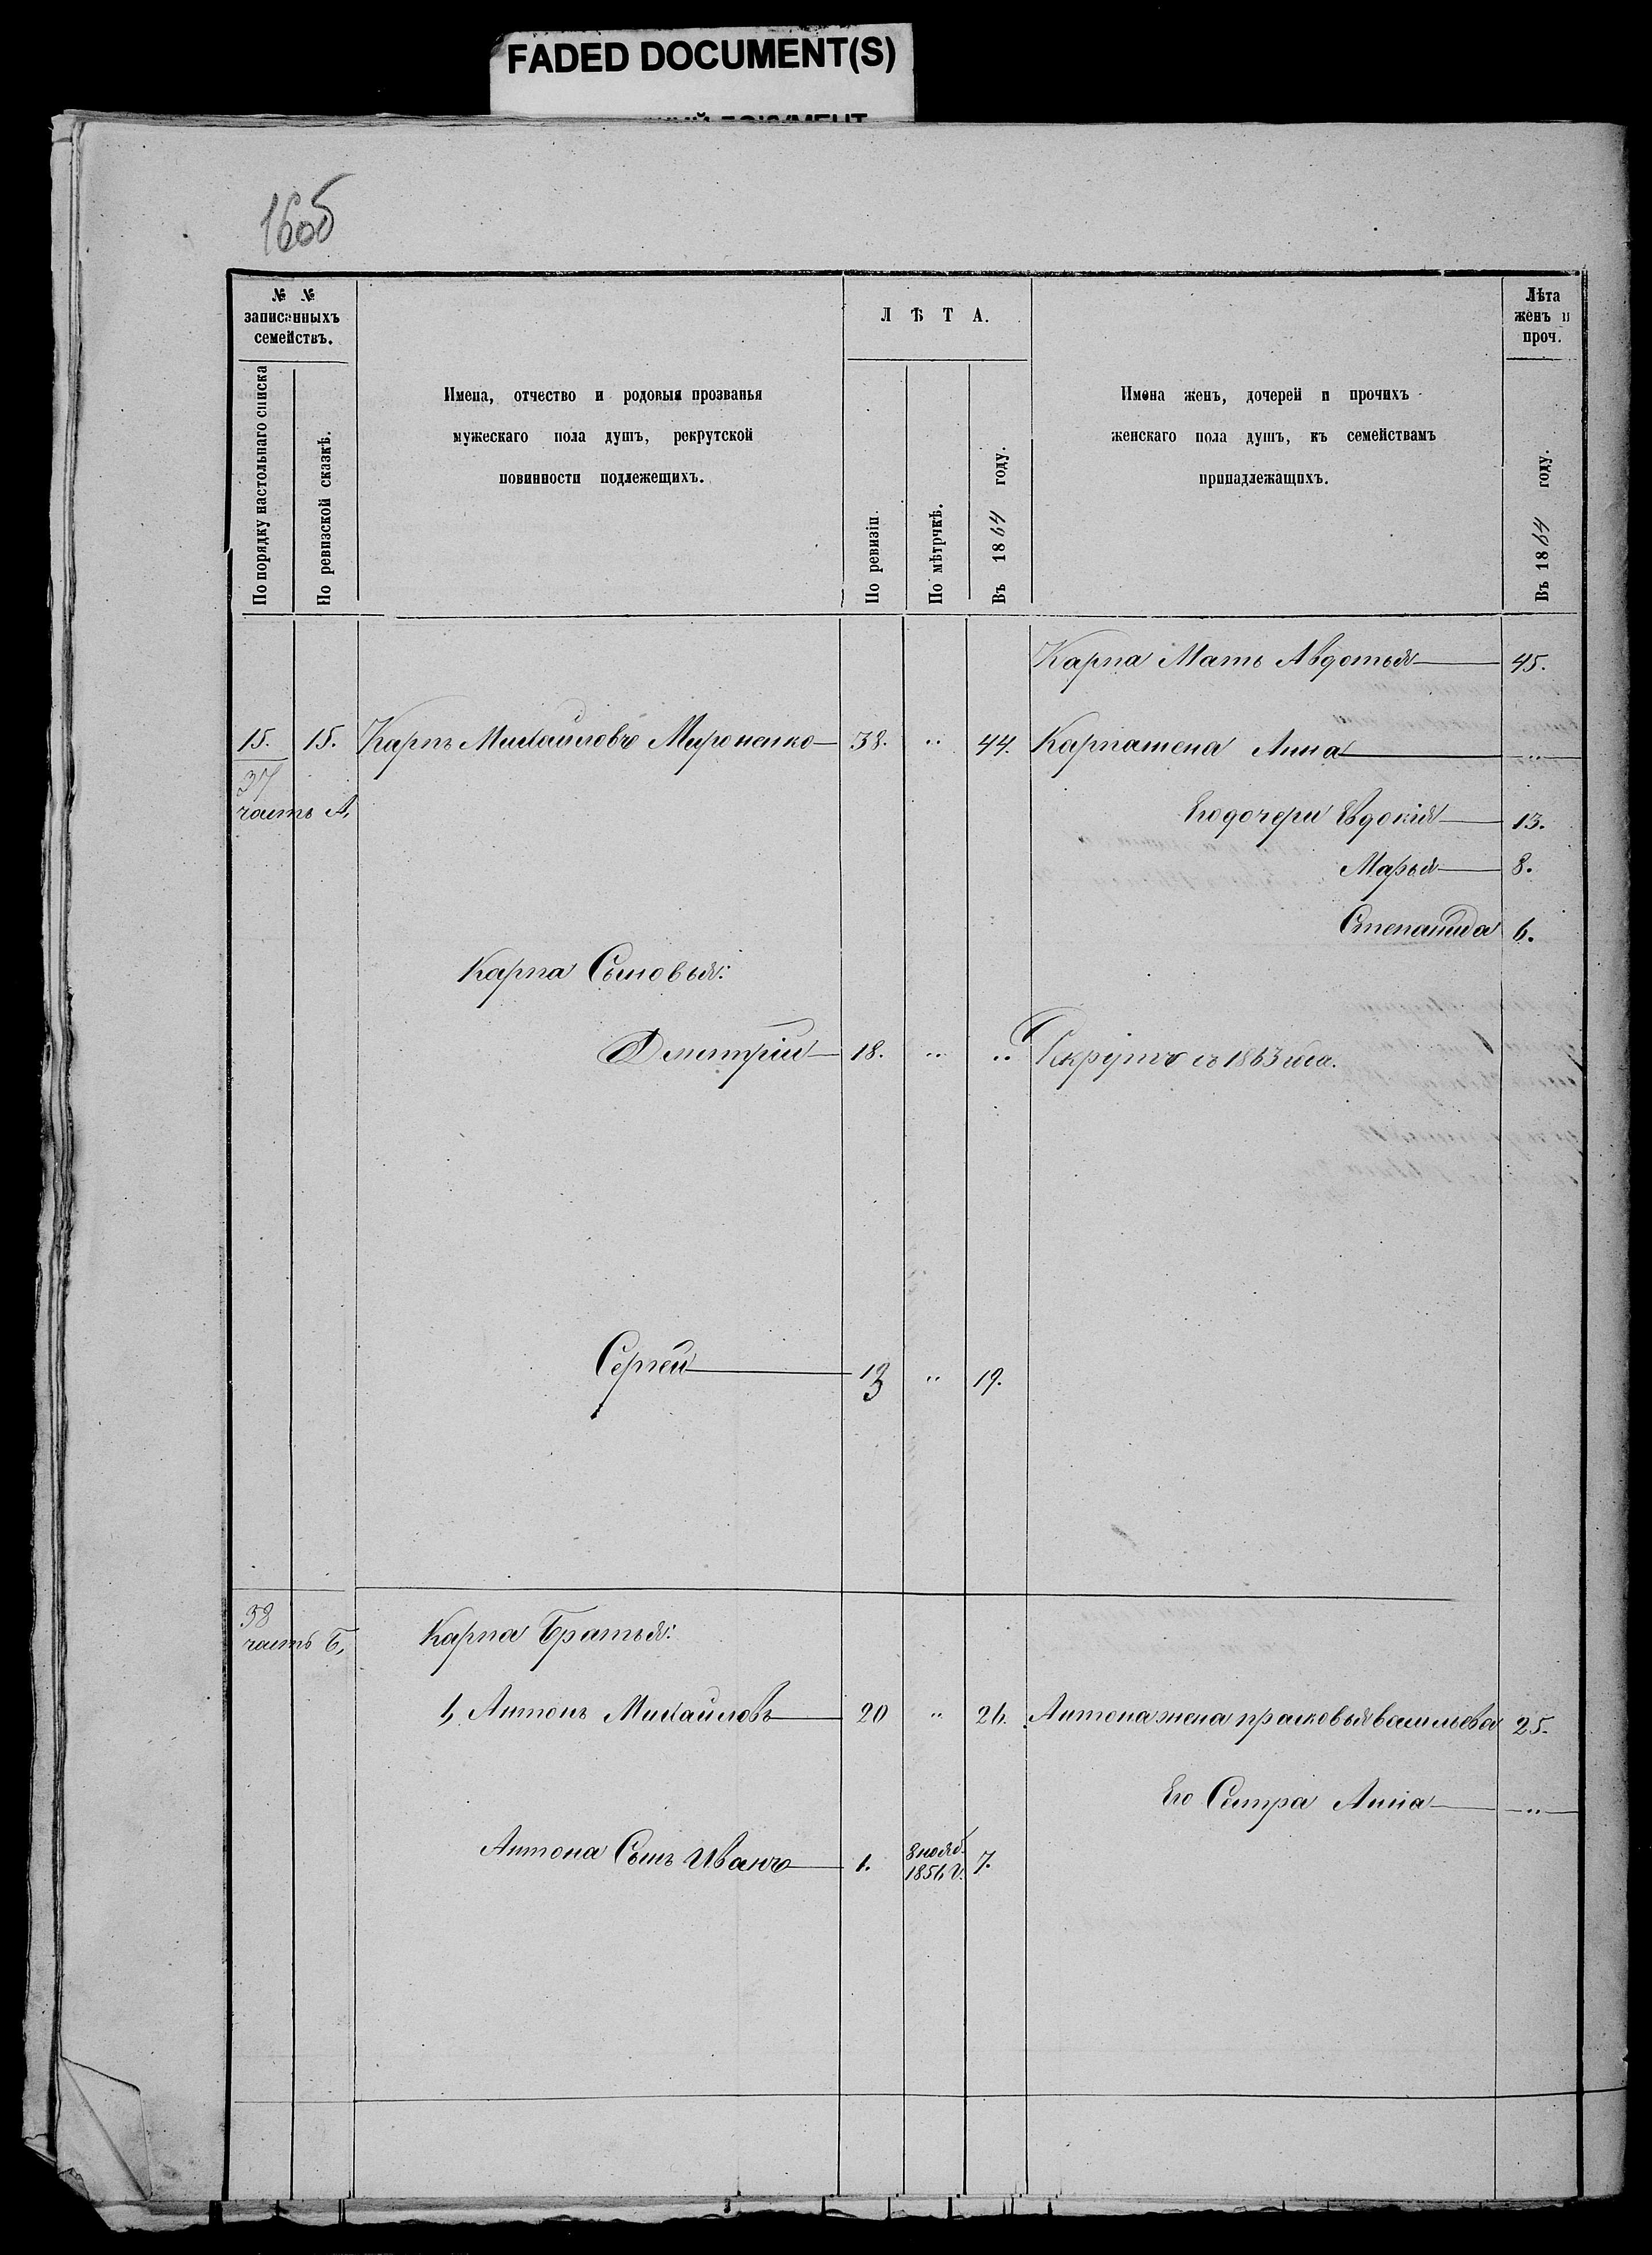 FADED DOCUMENT(S)
16об
№ №
записанныхъ
семействъ.
По порядку настольнаго списка
По ревизской сказкѣ.
Имена, отчество и родовыя прозванья
мужескаго пола душъ, рекрутской
повинности подлежещихъ.
ЛѢТА.
По ревизіи.
По мѣтрчкѣ.
Въ 1864 году.
Имена женъ, дочерей и прочихъ
женскаго пола душъ, къ семействамъ
принадлежащихъ.
Лѣта
женъ и
проч.
Въ 1864 году.
Карпа Мать Авдотья 45.
15. 15. Карпъ Михайловъ Мироненко 38. " 44. Карпа жена Анна "
37
часть А,
Его дочери Евдокія 13.
Марья 8.
Степанида 6.
Карпа Сыновья:
Дмитрій 18. " " Рекрутъ съ 1863 года.
Сергей 13 " 19.
38
часть Б,
Карпа Братья:
1, Антонъ Михайловъ 20 " 26. Антона жена прасковья васильева 25.
Его Сестра Анна "
Антона Сынъ Иванъ 1. 8 нояб. 1856 г. 7.